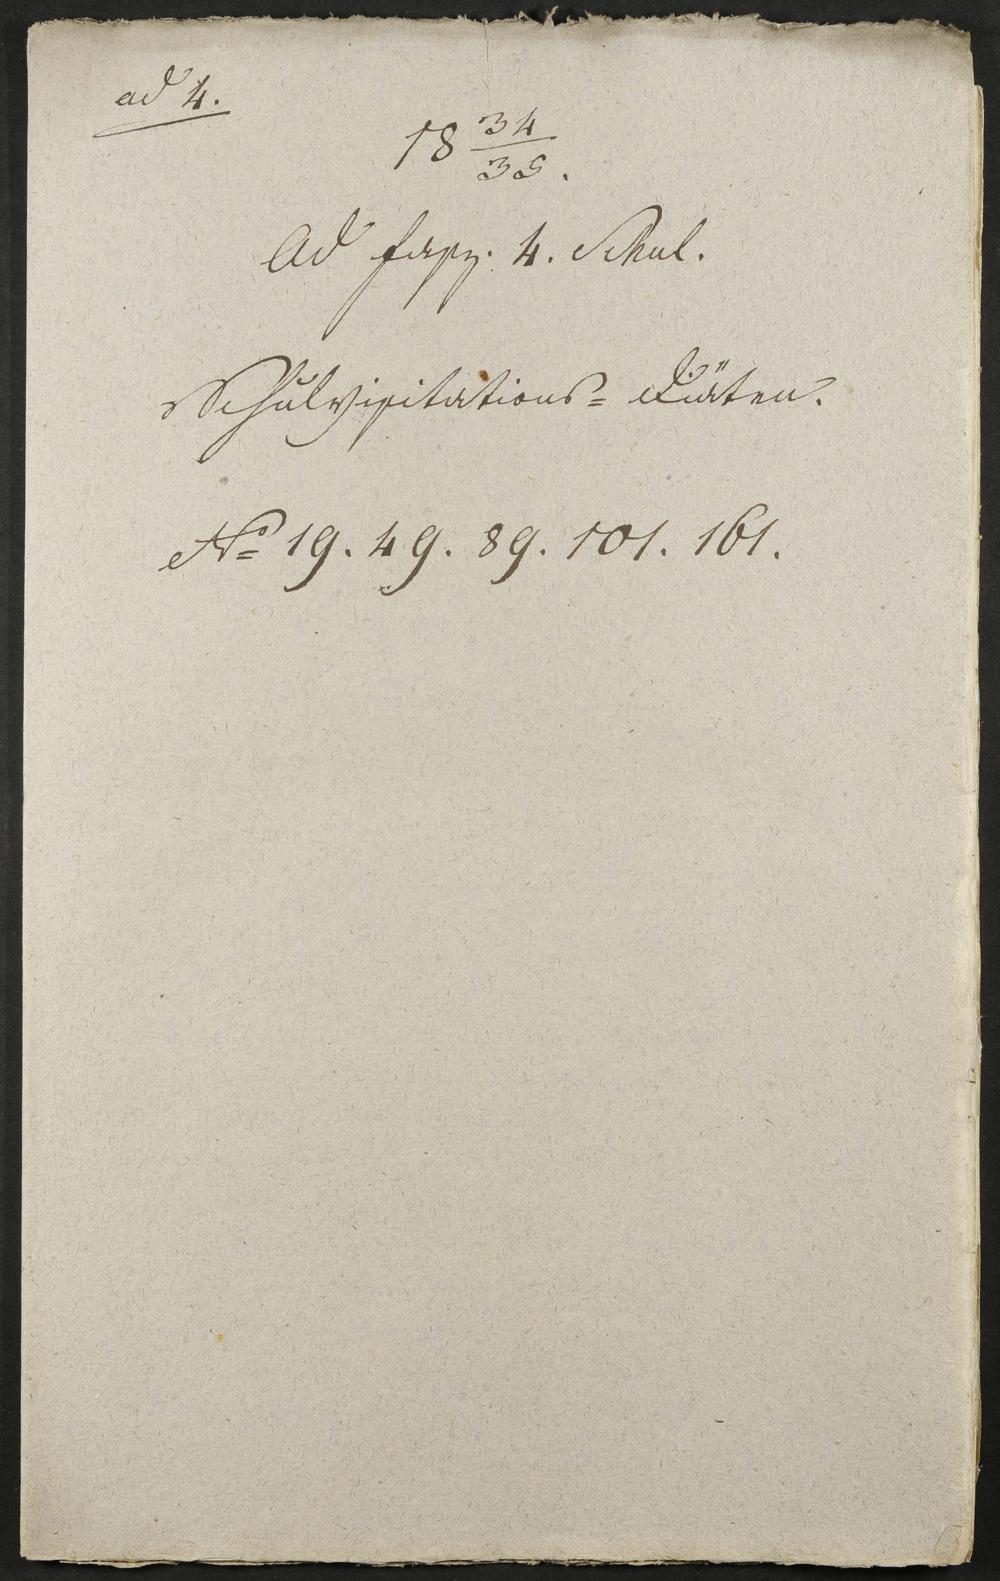 ad 4.
18 34/35.
Ad fasz. 4. Schul.
Schulvisitations= Diäten.
No 19. 49. 89. 101. 161.